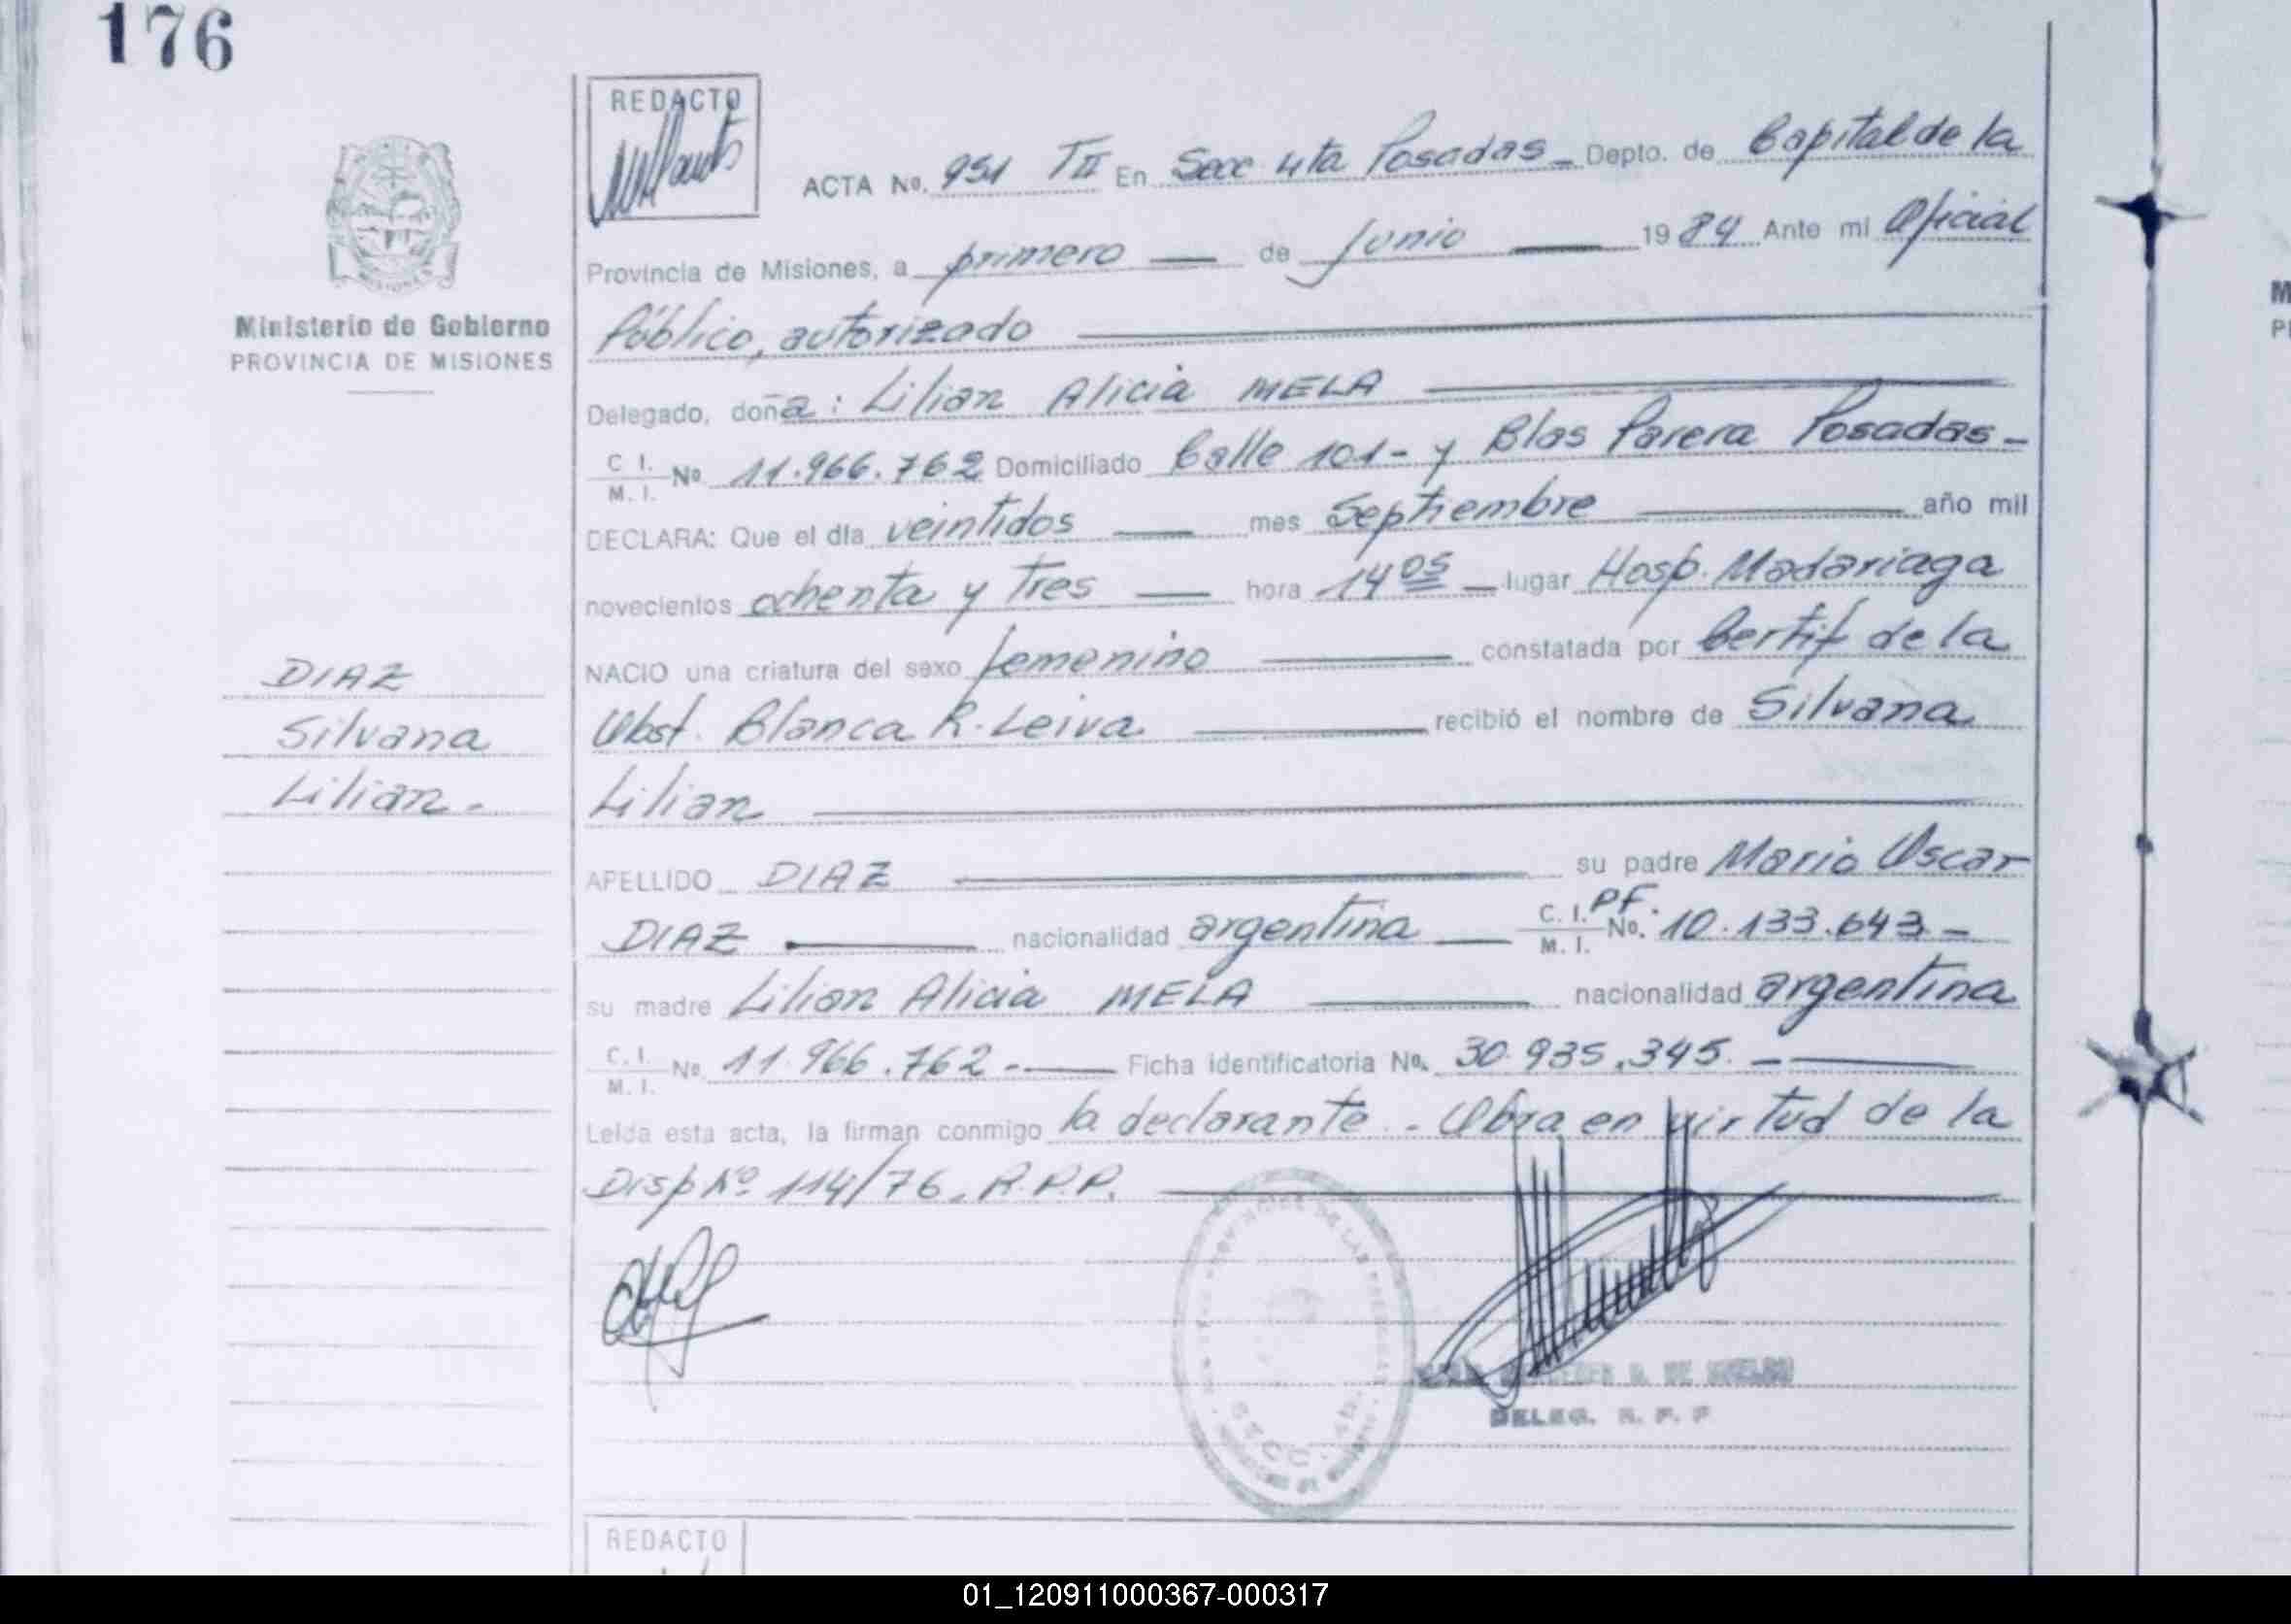 176
REDACTO
ACTA No. 951 TII En Secc 4ta Posadas - Depto. de Capital de la
Provincia de Misiones, a primero de Junio 1984 Ante mi Oficial
Ministerio de Gobierno
PROVINCIA DE MISIONES
Público, autorizado
Delegado, doña: Lilian Alicia MELA
C. I. / M. I. No 11.966.762 Domiciliado Calle 101 - y Blas Parera Posadas -
DECLARA: Que el día veintidos mes Septiembre año mil
novecientos ochenta y tres hora 14 05 - lugar Hosp. Madariaga
NACIO una criatura del sexo femenino constatada por Certif de la
Obst. Blanca R. Leiva recibió el nombre de Silvana
Lilian
DIAZ
Silvana
Lilian.
APELLIDO DIAZ su padre Mario Oscar
DIAZ nacionalidad argentina C. I. / M. I. PF. No. 10.133.643 -
su madre Lilian Alicia MELA nacionalidad argentina
C. I. / M. I. No 11.966.762 - Ficha identificatoria No. 30.935.345. -
Leida esta acta, la firman conmigo la declarante. - Obra en virtud de la
Disp Nº 114/76. R.P.P.
DELEG. R. P. P
REDACTO
01_120911000367-000317